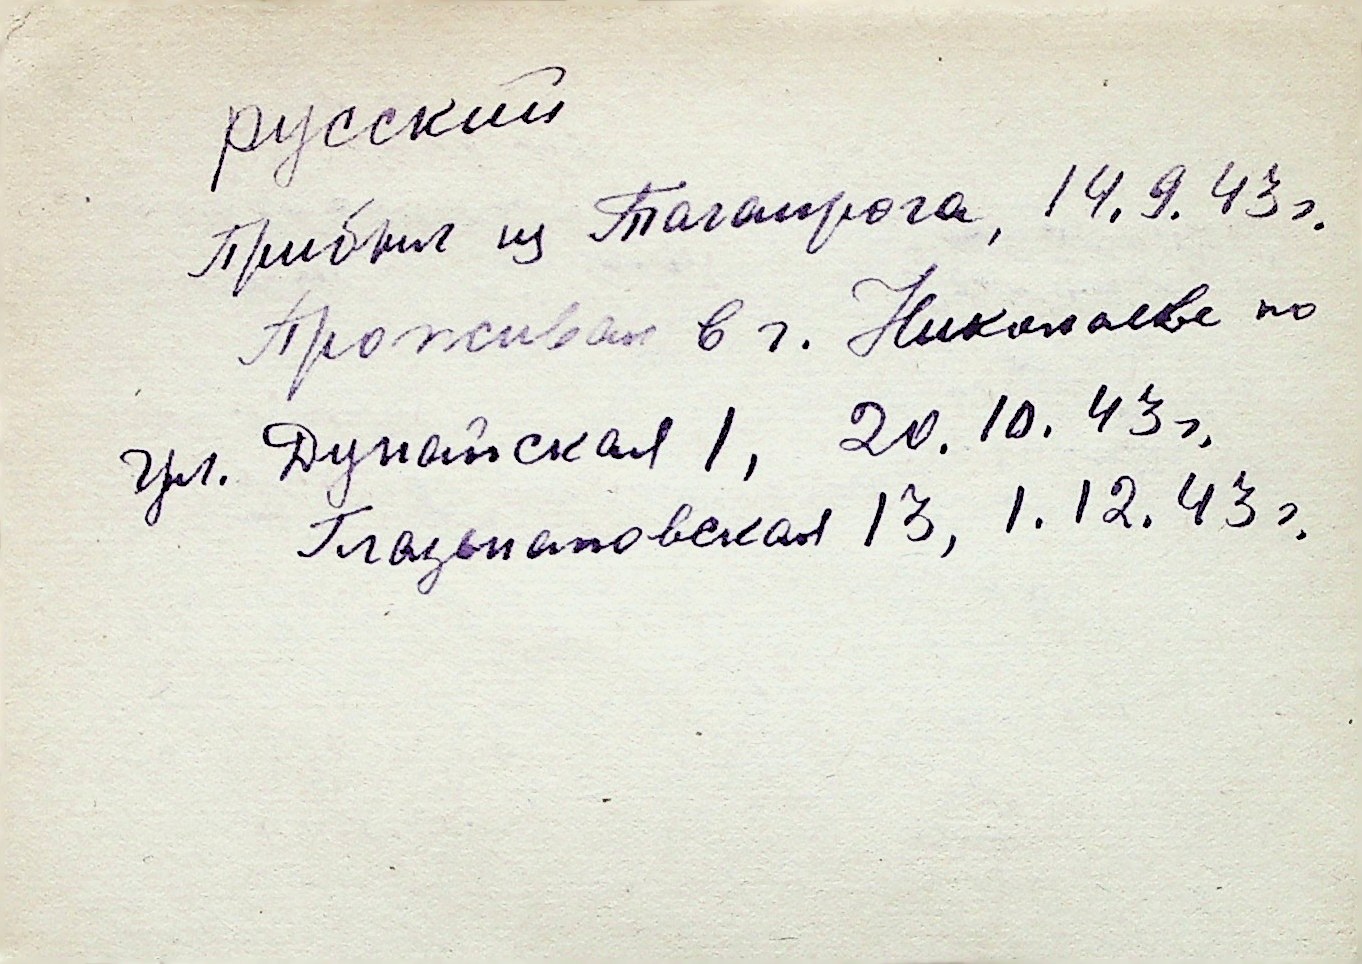 русский
Прибыл из Таганрога, 14.9.43г.
Проживал в г. Николаеве по
ул. Дунайская 1, 20.10.43г.
13, 1.12.43г.